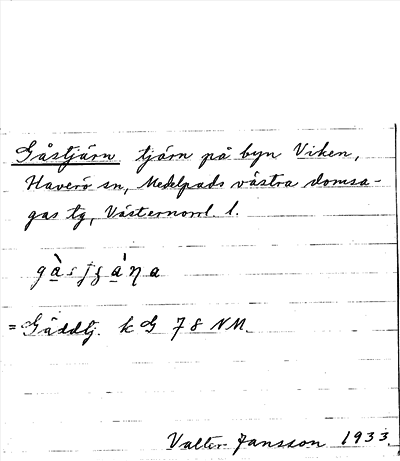 Gåstjärn tjärn på byn Viken,
Haverö sn, Medelpads västra domsa-
gas tg, Västernorrl. l.
= Gäddtj. k G 78 NM.
Valter Jansson 1933.